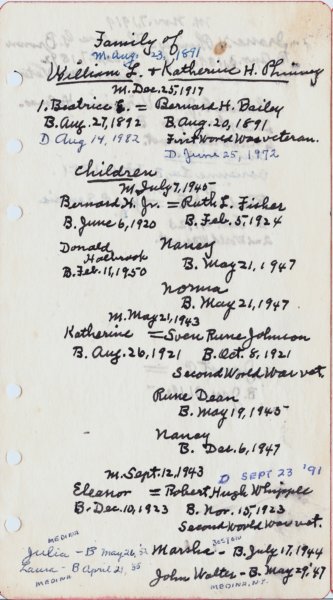 Family of
M. Aug. 23, 1891
William L. + Katherine H. Phinney
M. Dec. 25, 1917
1. Beatrice E. = Bernard H. Bailey
B. Aug. 27, 1892 B. Aug. 20, 1891
D Aug 14, 1982 First World War veteran.
D. June 25, 1972
Children
M. July 7, 1945
Bernard H. Jr. = Ruth L. Fisher
B. June 6, 1920 B. Feb. 5, 1924
Donald Nancy
Holbrook B. May 21, 1947
B. Feb. 11, 1950
Norma
B. May 21, 1947
M. May 21, 1943
Katherine = Sven Rune Johnson
B. Aug. 26, 1921 B. Oct. 8, 1921
Second World War vet.
Rune Dean
B. May 19, 1945
Nancy
B. Dec. 6, 1947
M. Sept. 12, 1943 D SEPT 23 '91
Eleanor = Robert Hugh Whipple
B. Dec. 10, 1923 B. Nov. 15, 1923
Second World War vet.
MEDINA BOSTON
Julia - B May 26, Marsha - B. July 17, 1944
Laura - B April 21, '55 John Walter - B. May 29, '47
MEDINA MEDINA, N.Y.